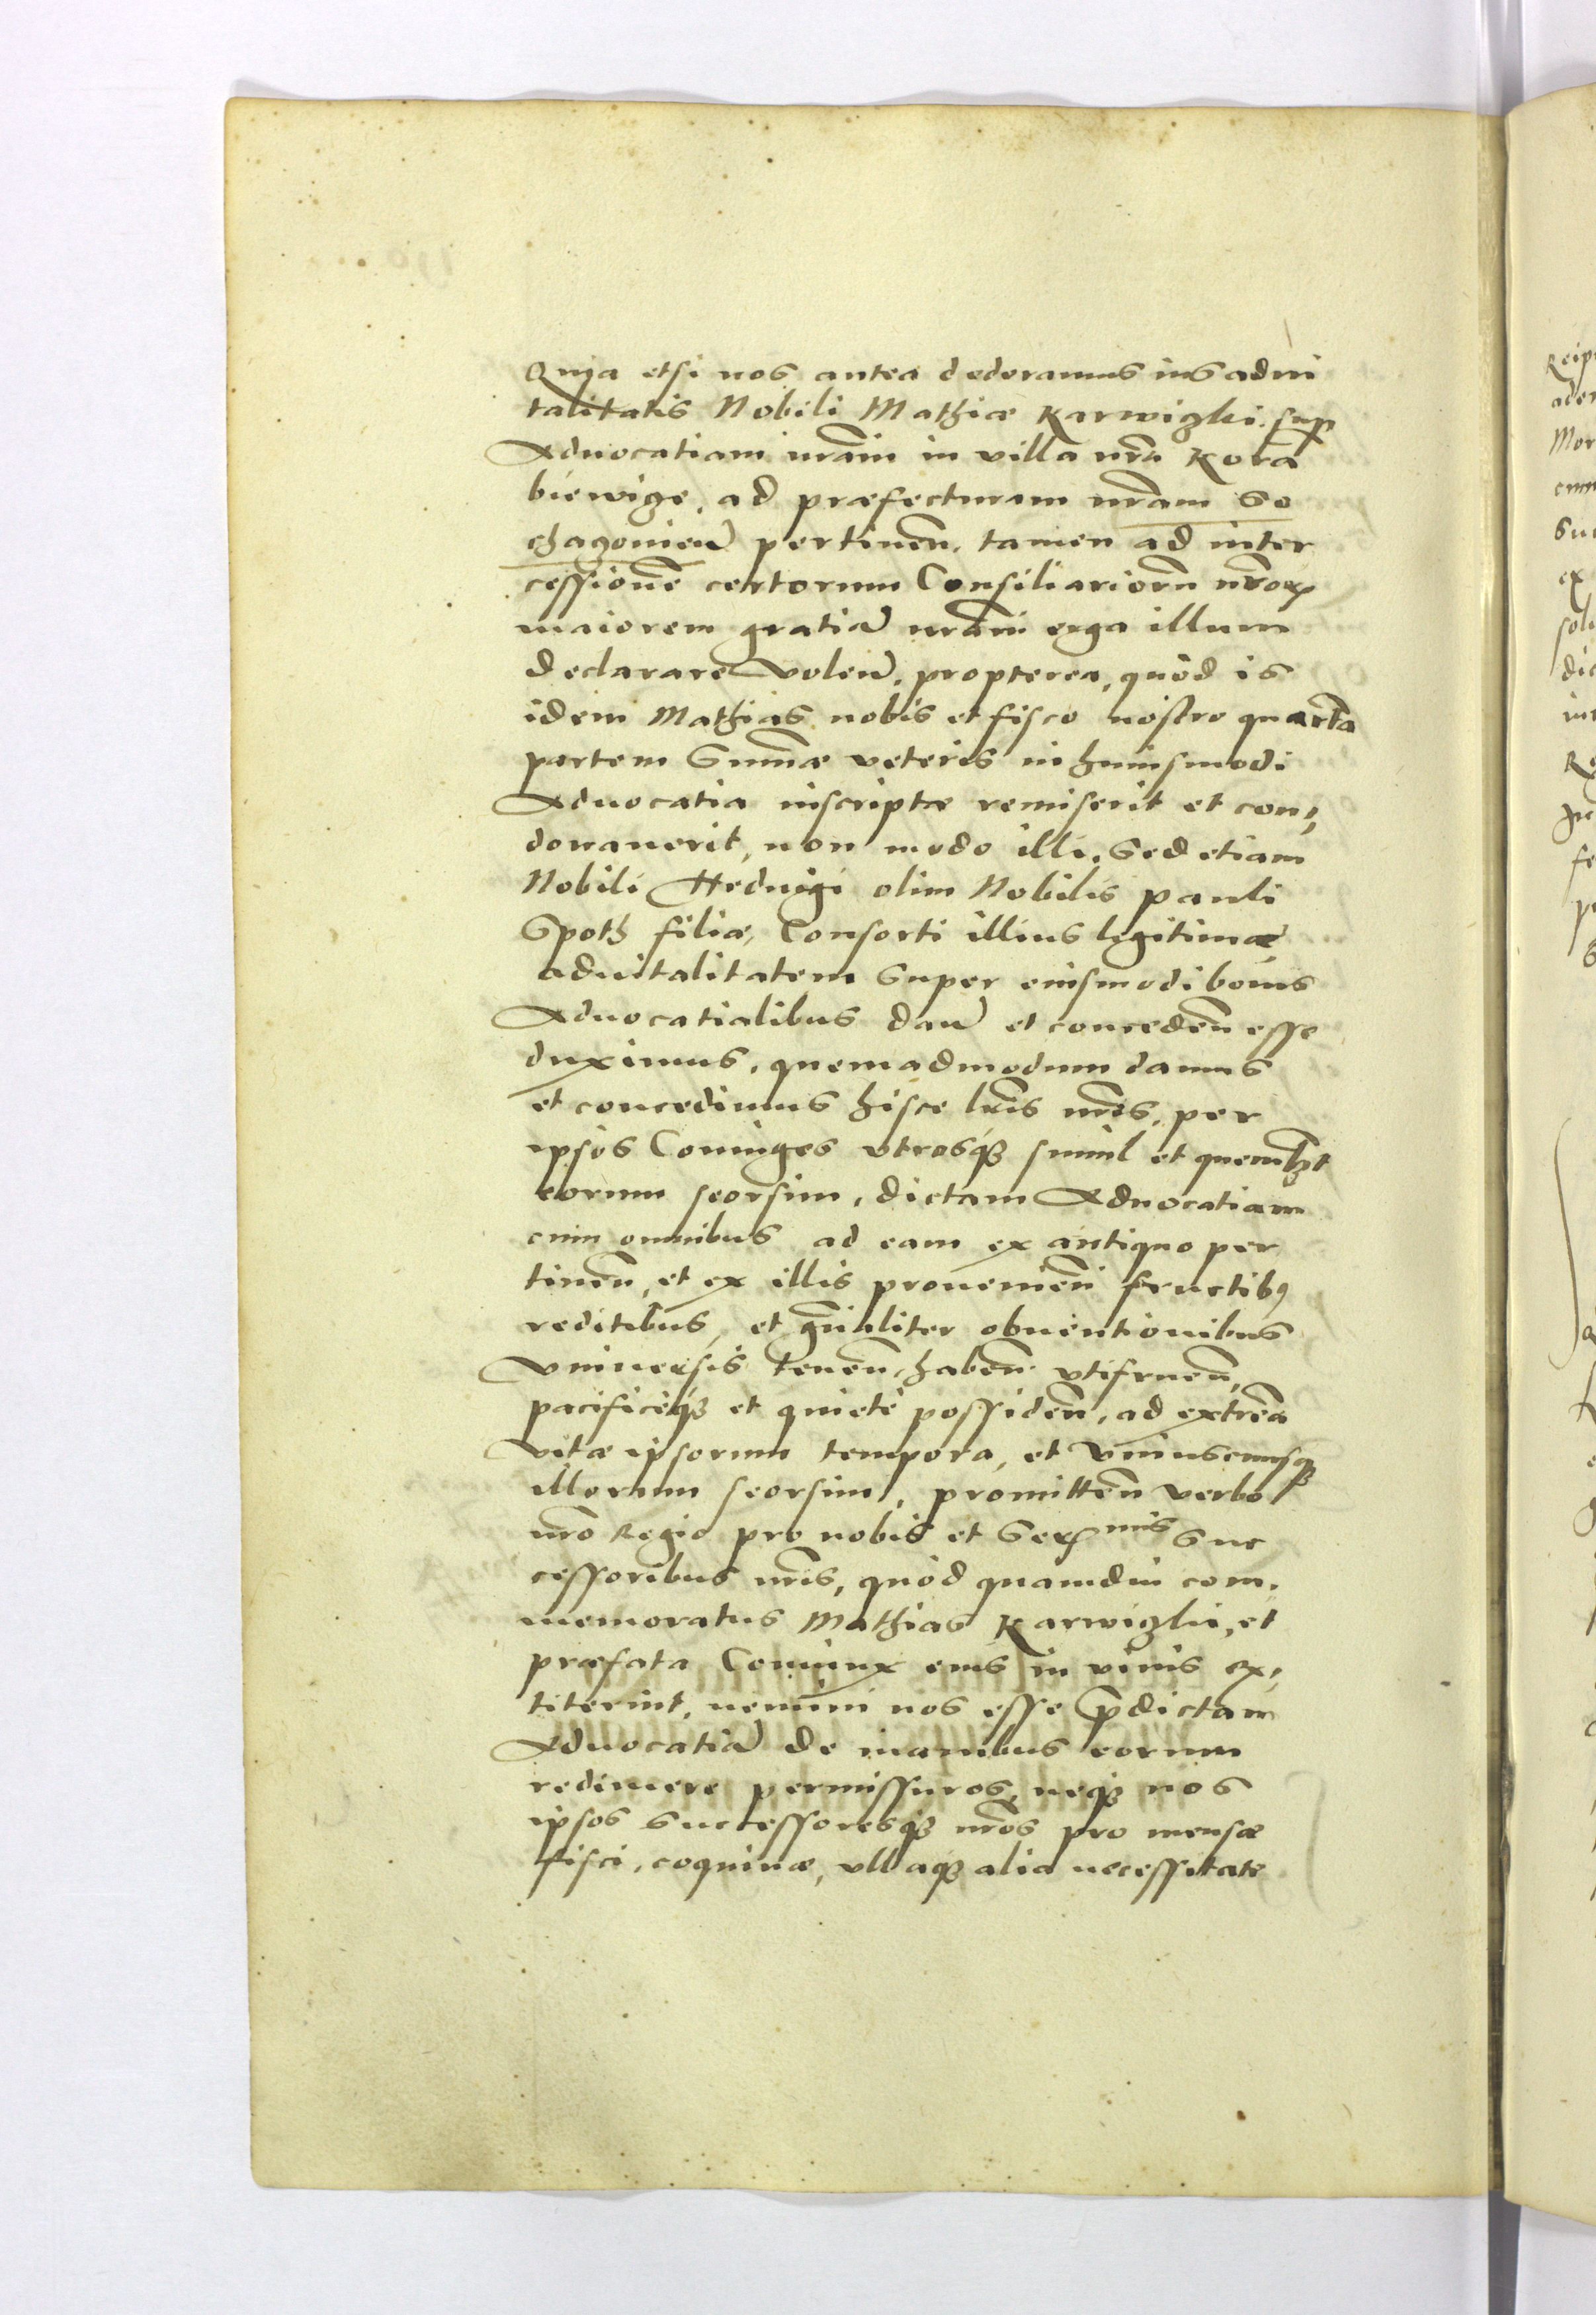 Quia etsi nos antea dederamus ius advi
talitatis Nobili Mathiæ Karwizki sup
Advocatiam nr̃am in villa nr̃a Kora
biewize, ad præfecturam nr̃am So
chazovieñ pertineñ. tamen ad inter
cessionẽ certorum Consiliariorũ nr̃oꝝ
maiorem gratiã nr̃am erga illum
declarare voleñ. propterea, quòd is
idem Mathias nobis et fisco nostro quartã
partem Sum̃æ veteris in huiusmodi
Advocatia inscriptæ remiserit et con,
donaverit, non modo illi, Sed etiam
Nobili Hedvigi olim Nobilis Pauli
Spoth filiæ, Consorti illius legitimæ
advitalitatem Super eiusmodi bonis
Advocatialibus dañ et concedeñ esse
duximus, quemadmodum damus
et concedimus hisce lr̃is nr̃is, per
ipsos Coniuges utrosqꝫ simul et quemlꝫt
eorum seorsim, dictam Advocatiam
cum omnibus ad eam ex antiquo per
tineñ, et ex illis provenieñ fructibꝰ
reditibus, et gñaliter obventionibus
Universis teneñ, habeñ utifrueñ,
pacificeqꝫ et quietè possideñ, ad extrema
vitæ ipsorum tempora, et Uniuscuiusqꝫ
illorum seorsim, promitteñ verbo
nr̃o Regio pro nobis et Serꝫmis Suc
cessoribus nr̃is, quòd quamdiu com,
memoratus Mathias Karwizki, et
præfata Coniunx eius in vivis ex,
titerint, nemini nos esse p̃dictam
Advocatiã de manibus eorum
redimere permissuros, neqꝫ nos
ipsos Successoresqꝫ nr̃os pro mensæ
fisci, coquinæ, ullaqꝫ alia necessitate